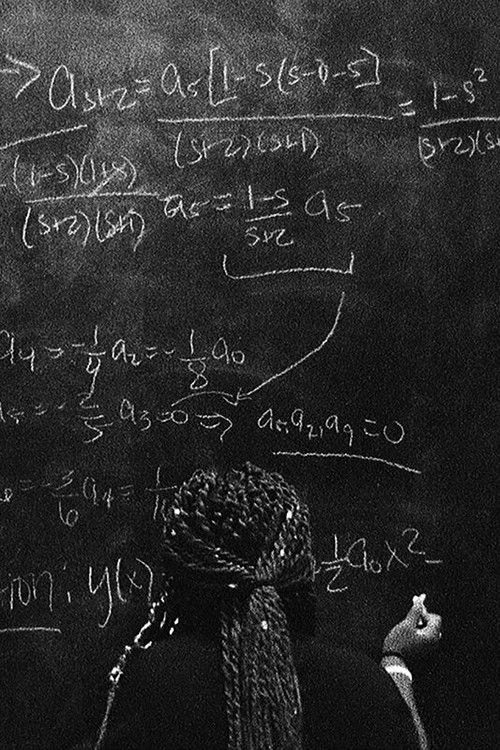 → a_{s+2} = a_s[1-s(s-1)-s] / (s+2)(s+1) = 1-s² / (s+2)(s
(1-s)(1+s) / (s+2)(s+1) a_s = 1-s / s+2 a_s
a₄ = -1/4 a₂ = -1/8 a₀
= -2/5 a₃ = 0 ⇒ a₅, a₇, a₉ = 0
= -3/6 a₄ = 1/1
ion: y(x) 1/2 a₀x² -